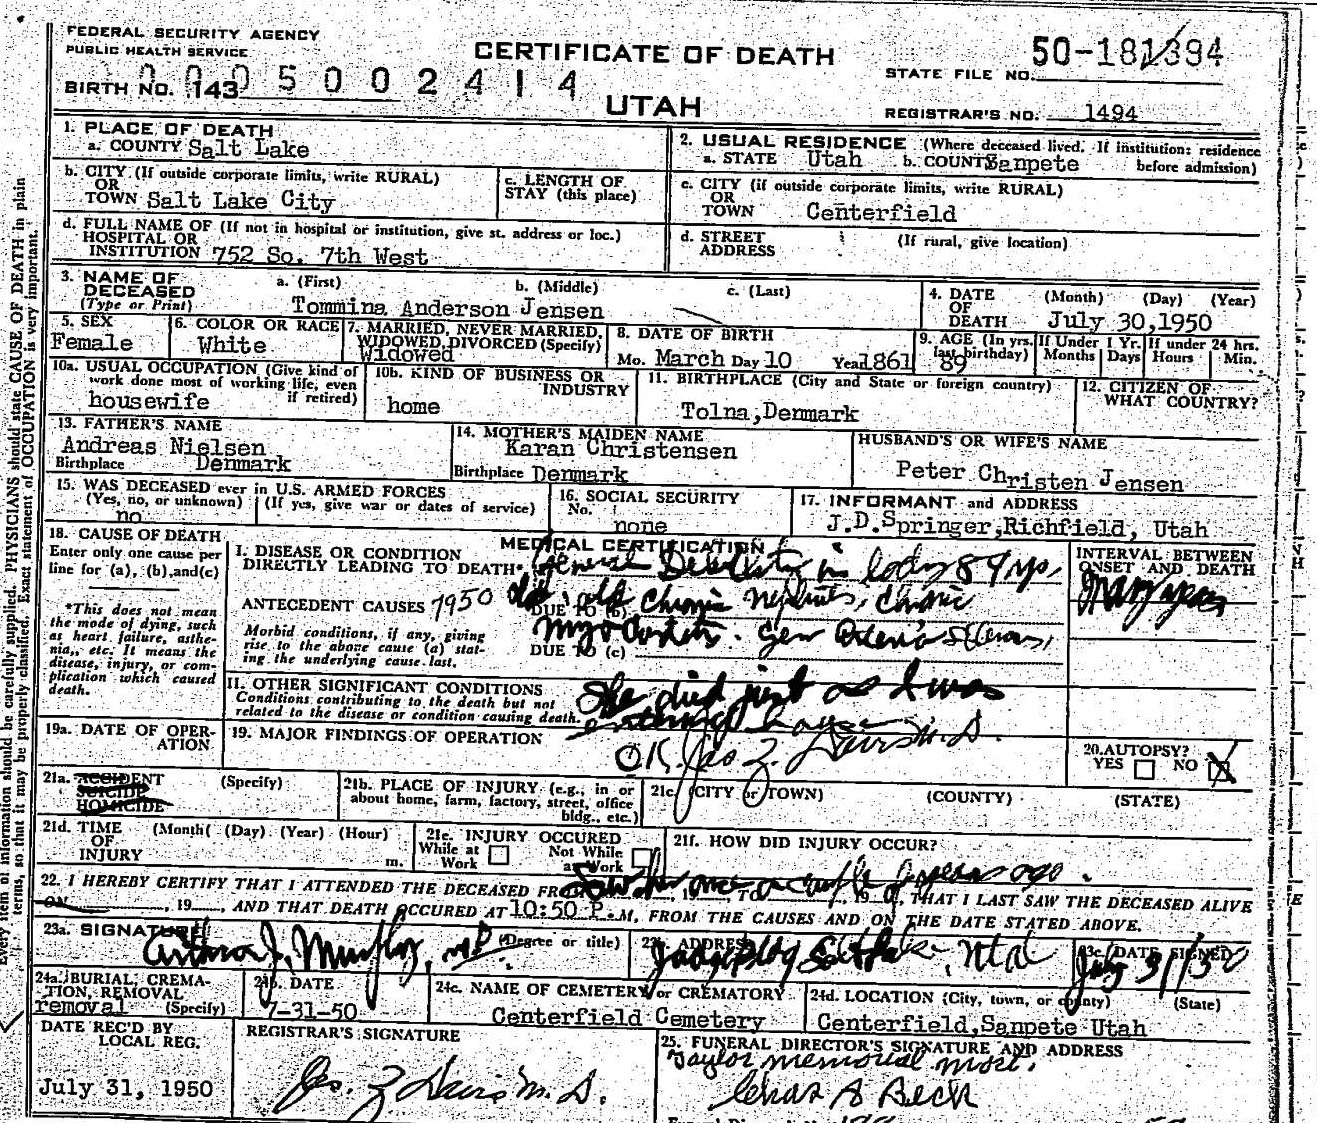 FEDERAL SECURITY AGENCY
PUBLIC HEALTH SERVICE
CERTIFICATE OF DEATH
UTAH
STATE FILE NO. 50-181394
BIRTH NO. 143 0005002414
REGISTRAR'S NO. 1494
1. PLACE OF DEATH
a. COUNTY Salt Lake
2. USUAL RESIDENCE (Where deceased lived. If institution: residence before admission)
a. STATE Utah b. COUNTY Sanpete
b. CITY (If outside corporate limits, write RURAL)
OR
TOWN Salt Lake City
c. LENGTH OF STAY (this place)
c. CITY (if outside corporate limits, write RURAL)
OR
TOWN Centerfield
d. FULL NAME OF (If not in hospital or institution, give st. address or loc.)
HOSPITAL OR
INSTITUTION 752 So. 7th West
d. STREET ADDRESS (If rural, give location)
3. NAME OF DECEASED (Type or Print)
a. (First) b. (Middle) c. (Last)
Tommina Anderson Jensen
4. DATE OF DEATH (Month) (Day) (Year)
July 30,1950
5. SEX
Female
6. COLOR OR RACE
White
7. MARRIED, NEVER MARRIED, WIDOWED, DIVORCED (Specify)
Widowed
8. DATE OF BIRTH
Mo. March Day 10 Year 1861
9. AGE (In yrs. last birthday) 89
If Under 1 Yr. Months Days
If under 24 hrs. Hours Min.
10a. USUAL OCCUPATION (Give kind of work done most of working life, even if retired)
housewife
10b. KIND OF BUSINESS OR INDUSTRY
home
11. BIRTHPLACE (City and State or foreign country)
Tolna,Denmark
12. CITIZEN OF WHAT COUNTRY?
13. FATHER'S NAME
Andreas Nielsen
Birthplace Denmark
14. MOTHER'S MAIDEN NAME
Karan Christensen
Birthplace Denmark
HUSBAND'S OR WIFE'S NAME
Peter Christen Jensen
15. WAS DECEASED ever in U.S. ARMED FORCES
(Yes, no, or unknown) (If yes, give war or dates of service)
no
16. SOCIAL SECURITY No.
none
17. INFORMANT and ADDRESS
J.D.Springer,Richfield, Utah
18. CAUSE OF DEATH
Enter only one cause per line for (a), (b), and (c)
*This does not mean the mode of dying, such as heart failure, asthenia,, etc. It means the disease, injury, or complication which caused death.
MEDICAL CERTIFICATION
I. DISEASE OR CONDITION
DIRECTLY LEADING TO DEATH* General Debility in lady 89 yrs,
ANTECEDENT CAUSES 1950
DUE TO (b) chronic nephritis, chronic
Morbid conditions, if any, giving rise to the above cause (a) stating the underlying cause last.
DUE TO (c) Myocarditis. Gen
INTERVAL BETWEEN ONSET AND DEATH
Many years
II. OTHER SIGNIFICANT CONDITIONS
Conditions contributing to the death but not related to the disease or condition causing death.
She died just as I was
entering house
19a. DATE OF OPERATION
19. MAJOR FINDINGS OF OPERATION
OK. Jas Z. Davis M.D.
20. AUTOPSY?
YES NO X
21a. ACCIDENT (Specify)
SUICIDE
HOMICIDE
21b. PLACE OF INJURY (e.g., in or about home, farm, factory, street, office bldg., etc.)
21c. (CITY or TOWN) (COUNTY) (STATE)
21d. TIME OF INJURY (Month( (Day) (Year) (Hour) m.
21e. INJURY OCCURED
While at Work Not While at Work
21f. HOW DID INJURY OCCUR?
Saw her once a couple of years ago.
22. I HEREBY CERTIFY THAT I ATTENDED THE DECEASED FROM , 19 , TO , 19 , THAT I LAST SAW THE DECEASED ALIVE
ON , 19 , AND THAT DEATH OCCURED AT 10:50 P.M, FROM THE CAUSES AND ON THE DATE STATED ABOVE.
23a. SIGNATURE (Degree or title)
Arthur J. Murphy, M.D.
23b. ADDRESS
Judge Bldg Salt Lake, Utah
23c. DATE SIGNED
July 31/50
24a. BURIAL, CREMATION, REMOVAL (Specify)
removal
24b. DATE
7-31-50
24c. NAME OF CEMETERY or CREMATORY
Centerfield Cemetery
24d. LOCATION (City, town, or county) (State)
Centerfield,Sanpete Utah
DATE REC'D BY LOCAL REG.
July 31, 1950
REGISTRAR'S SIGNATURE
Jas. Z Davis M.D.
25. FUNERAL DIRECTOR'S SIGNATURE AND ADDRESS
Taylor Memorial Mort.
Chas A Beck
Every item of information should be carefully supplied. PHYSICIANS should state CAUSE OF DEATH in plain
terms, so that it may be properly classified. Exact statement of OCCUPATION is very important.